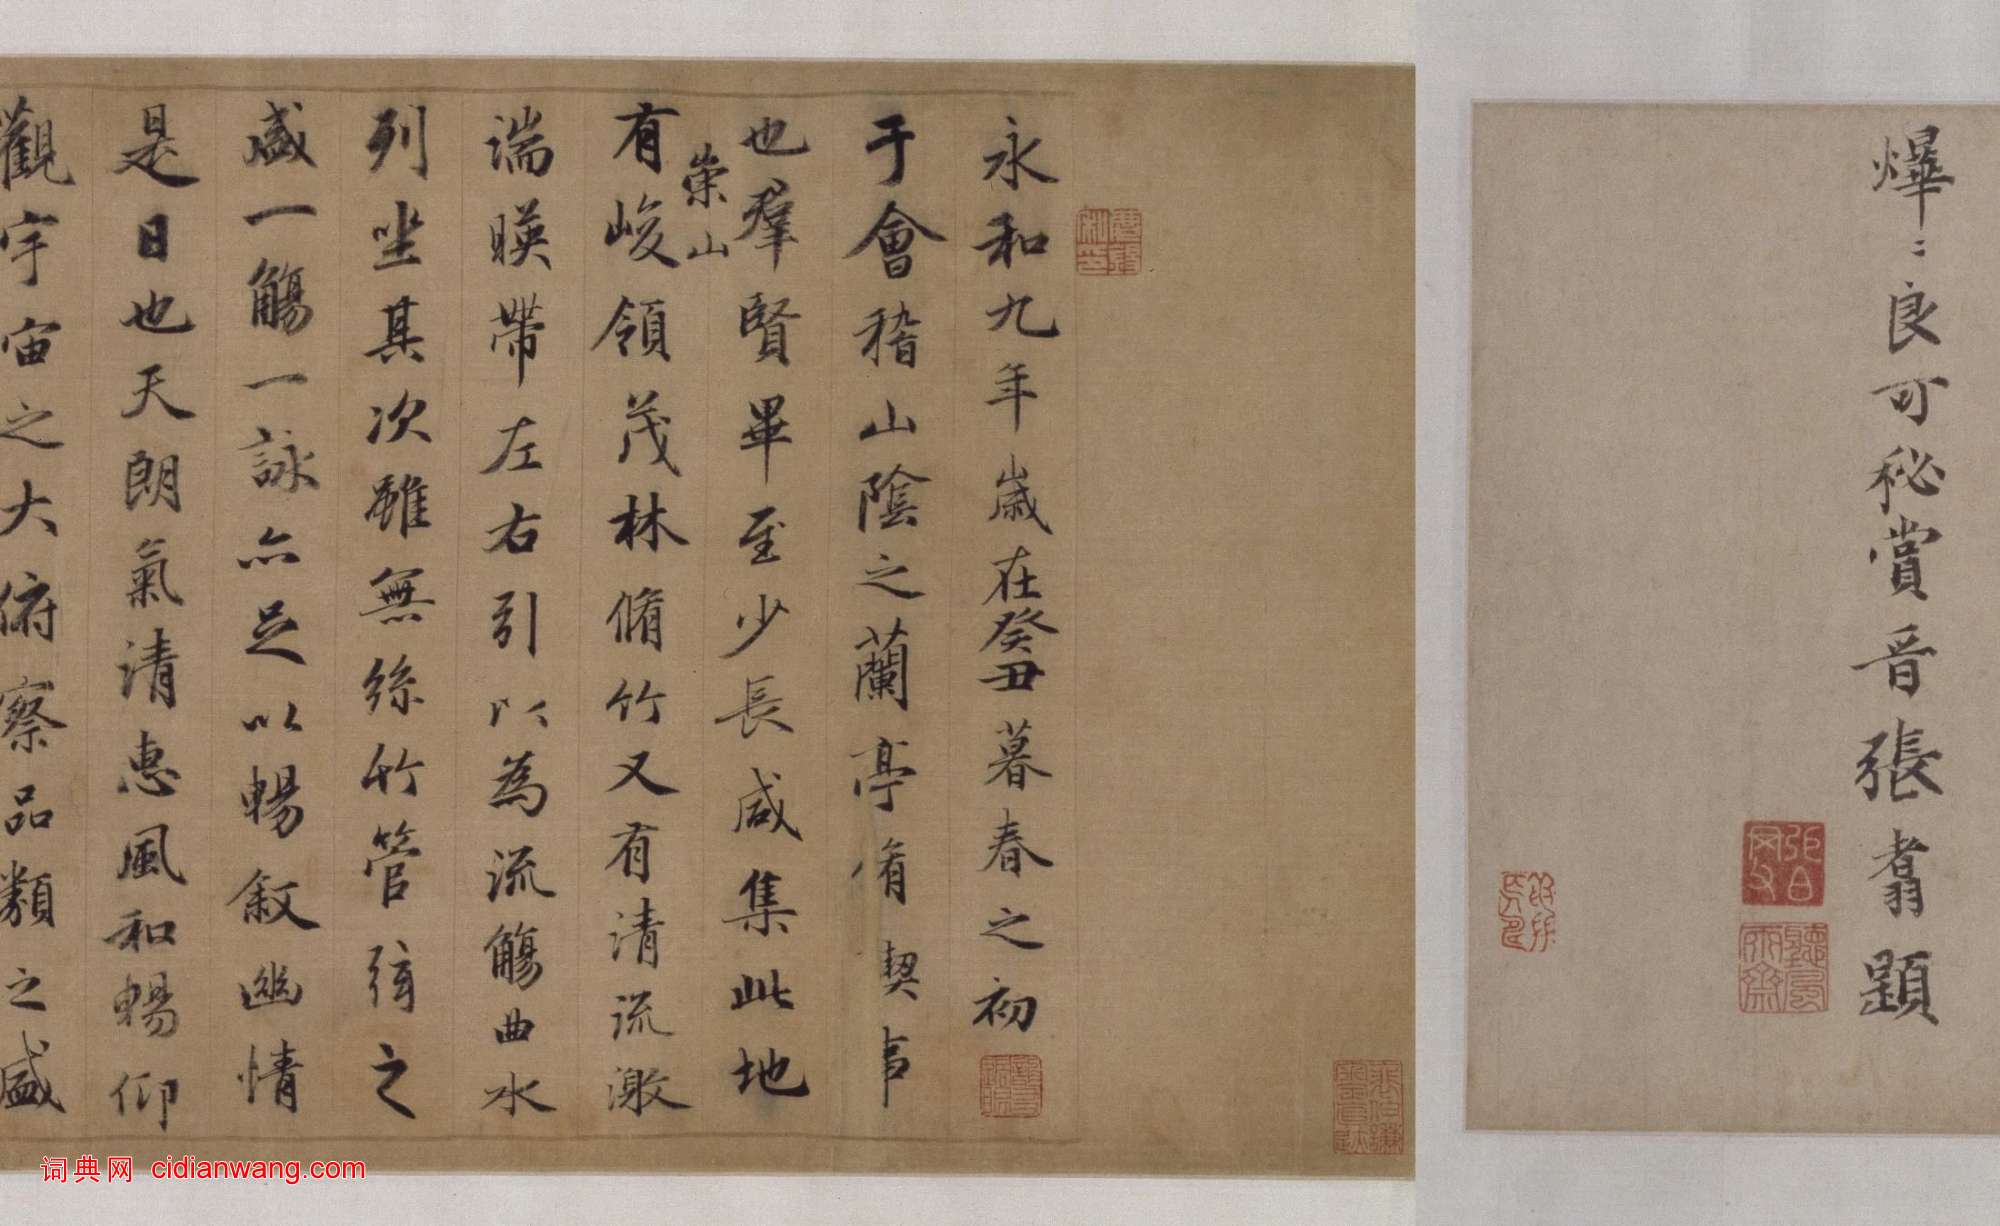 燁〻良可秘賞晉張翥題
永和九年歲在癸丑暮春之初
于會稽山陰之蘭亭脩稧事
也羣賢畢至少長咸集此地
崇山
有峻領茂林脩竹又有清流激
湍暎帶左右引以為流觴曲水
列坐其次雖無絲竹管弦之
盛一觴一詠亦足以暢敘幽情
是日也天朗氣清惠風和暢仰
觀宇宙之大俯察品類之盛
词典网 cidianwang.com